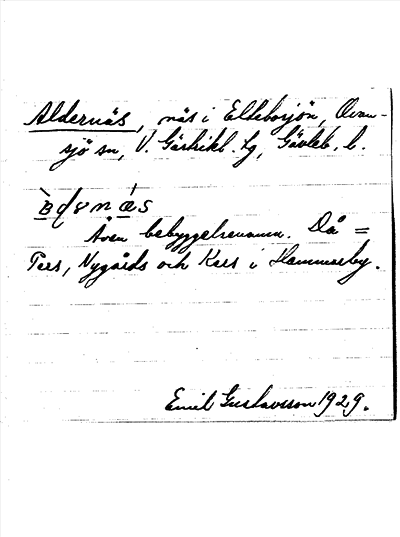 Aldernäs, näs i Eltebosjön, Ovan-
sjö sn, V. Gästrikl. hg, Gävleb. l.
Även bebyggelsenamn. Då =
Pers, Nygårds och Kers i Hammarby.
Emil Gustavsson 1929.